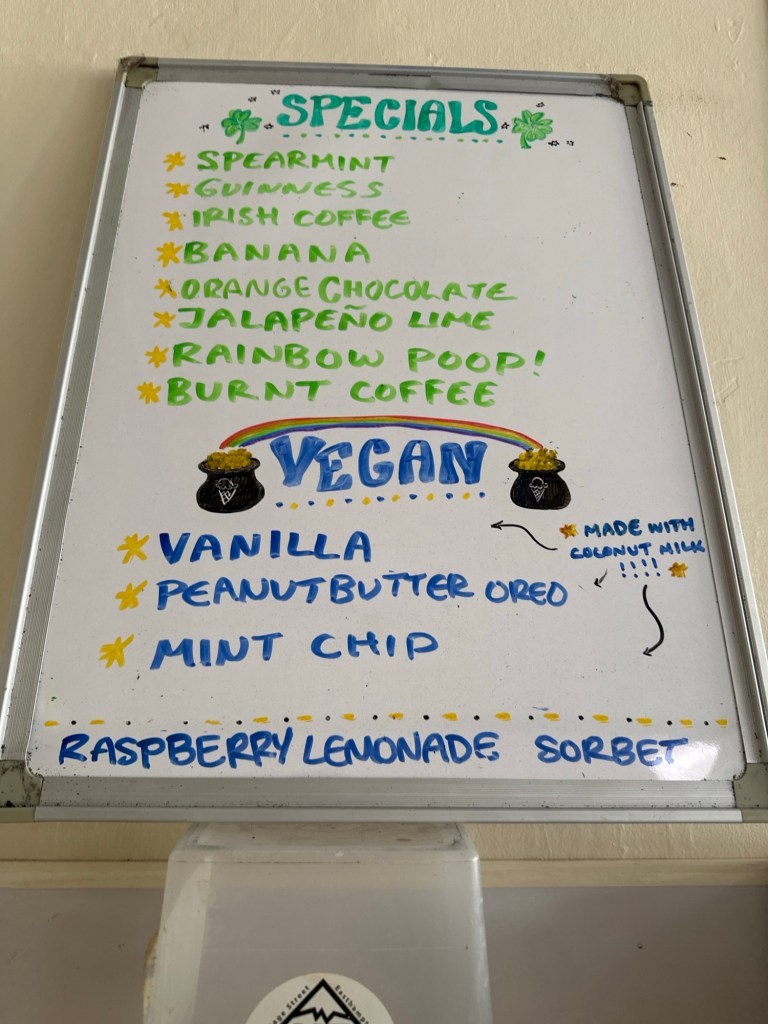 SPECIALS
SPEARMINT
GUINNESS
IRISH COFFEE
BANANA
ORANGE CHOCOLATE
JALAPEÑO LIME
RAINBOW POOP!
BURNT COFFEE
VEGAN
MADE WITH
COCONUT MILK
!!!!
VANILLA
PEANUTBUTTER OREO
MINT CHIP
RASPBERRY LEMONADE SORBET